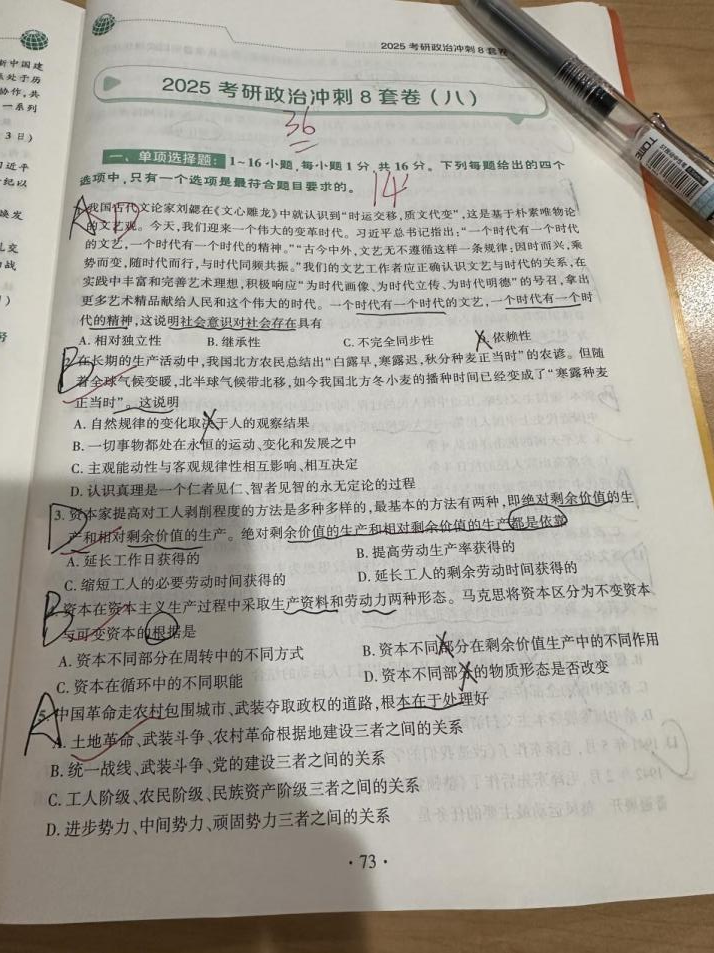 新中国建
处于历
协作,共
一系列
3日)
近平
纪以
焕发
交
战
2025 考研政治冲刺 8 套卷
2025 考研政治冲刺 8 套卷(八)
36
一、单项选择题: 1~16 小题,每小题 1 分,共 16 分。下列每题给出的四个
选项中,只有一个选项是最符合题目要求的。
14
A D
我国古代文论家刘勰在《文心雕龙》中就认识到“时运交移,质文代变”,这是基于朴素唯物论
的文艺观。今天,我们迎来一个伟大的变革时代。习近平总书记指出:“一个时代有一个时代
的文艺,一个时代有一个时代的精神。”“古今中外,文艺无不遵循这样一条规律:因时而兴,乘
势而变,随时代而行,与时代同频共振。”我们的文艺工作者应正确认识文艺与时代的关系,在
实践中丰富和完善艺术理想,积极响应“为时代画像、为时代立传、为时代明德”的号召,拿出
更多艺术精品献给人民和这个伟大的时代。一个时代有一个时代的文艺,一个时代有一个时
代的精神,这说明社会意识对社会存在具有
A. 相对独立性 B. 继承性 C. 不完全同步性 D. 依赖性
B
2. 在长期的生产活动中,我国北方农民总结出“白露早,寒露迟,秋分种麦正当时”的农谚。但随
着全球气候变暖,北半球气候带北移,如今我国北方冬小麦的播种时间已经变成了“寒露种麦
正当时”。这说明
A. 自然规律的变化取决于人的观察结果
B. 一切事物都处在永恒的运动、变化和发展之中
C. 主观能动性与客观规律性相互影响、相互决定
D. 认识真理是一个仁者见仁、智者见智的永无定论的过程
D
3. 资本家提高对工人剥削程度的方法是多种多样的,最基本的方法有两种,即绝对剩余价值的生
产和相对剩余价值的生产。绝对剩余价值的生产和相对剩余价值的生产都是依靠
A. 延长工作日获得的 B. 提高劳动生产率获得的
C. 缩短工人的必要劳动时间获得的 D. 延长工人的剩余劳动时间获得的
B
4. 资本在资本主义生产过程中采取生产资料和劳动力两种形态。马克思将资本区分为不变资本
与可变资本的根据是
A. 资本不同部分在周转中的不同方式 B. 资本不同部分在剩余价值生产中的不同作用
C. 资本在循环中的不同职能 D. 资本不同部分的物质形态是否改变
A
5. 中国革命走农村包围城市、武装夺取政权的道路,根本在于处理好
A. 土地革命、武装斗争、农村革命根据地建设三者之间的关系
B. 统一战线、武装斗争、党的建设三者之间的关系
C. 工人阶级、农民阶级、民族资产阶级三者之间的关系
D. 进步势力、中间势力、顽固势力三者之间的关系
· 73 ·